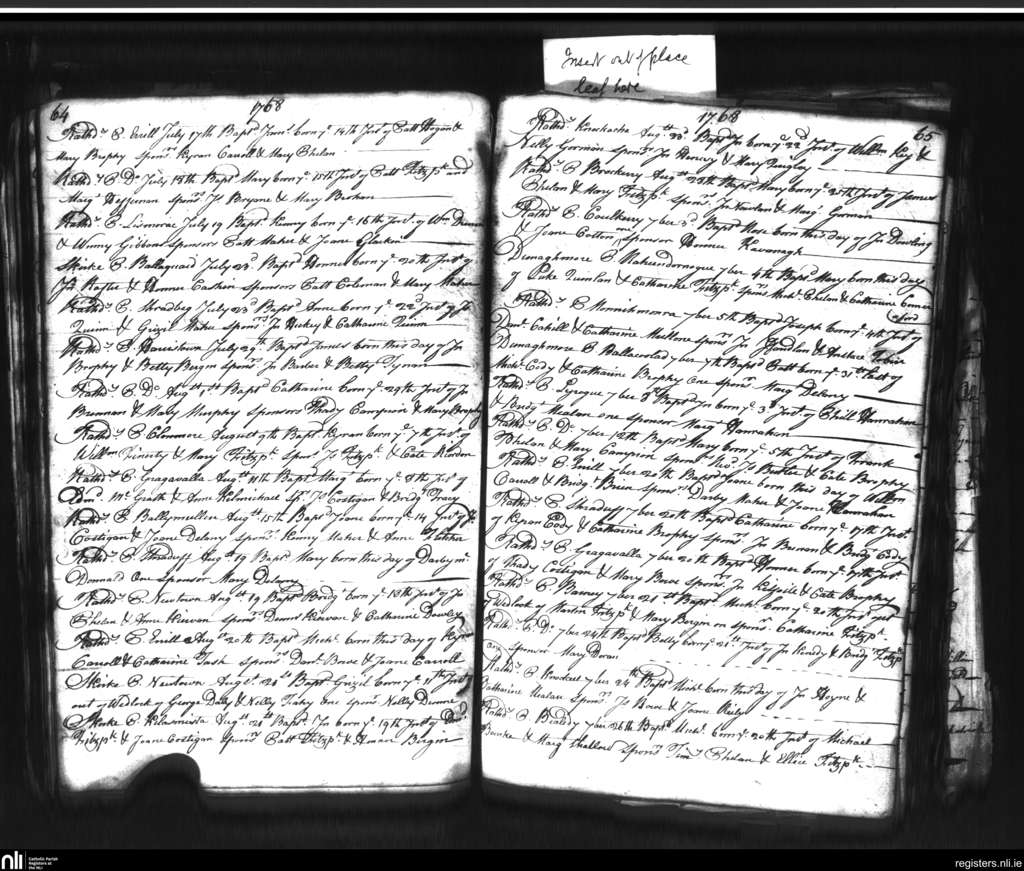 Insert out of place
leaf here
64
1768
Rathd.y P. Errill July 17th Bapt.d born y.e 14th Inst. of Patt Hogan &
Mary Brophy Spon.rs Kyran Carroll & Mary Phelan
Rathd.y P. D.o July 18th Bapt.d Mary born y.e 15th Inst. of Patt Fitzp.k and
Marg.t Heffernan Spon.rs J.s Bryane & Mary Bershan
Rathd.y P. Lismurae July 19 Bapt.d Kenny born y.e 16th Inst. of W.m
& Winny Gibbons Sponsors Patt Maher & Joane Glackan
Skirke P. Ballaguard July 23.d Bapt.d Honner born y.e 20th Inst. of
J.s Rafter & Honner Cashin sponsors Patt Coleman & Mary Maher
Rathd.y P. Shradbeg July 23.d Bapt.d Anne born y.e 22.d Inst. of J.n
Quinn & Grizil Maher Spon.rs J.n Hickey & Catharine Quinn
Rathd.y P. Harristown July 29th Bapt.d James born this day of J.n
Brophy & Betty Bergin Spon.rs J.n Butler & Betty Tynan
Rathd.y P. D.o Aug.st 1st Bapt.d Catharine born y.e 29th Inst. of J.n
Brennan & Maby Murphy Sponsors Thady Campion & Mary Brophy
Rathd.y P. Clonmore August 9th Bapt.d Kyran born y.e 7th Inst. of
Will.m Finerty & Mary Fitzp.k Spon.rs J.n Fitzp.k & Cate Riordon
Rathd.y P. Gragavalla Aug.st 11th Bapt.d Marg.t born y.e 8th Inst. of
Dan.l McGrath & Anne Kelmichael Sp.rs J.n Costigan & Bridg.t Tracy
Rathd.y P. Ballymullin Aug.st 15th Bapt.d Joane born y.e 14 Inst. of
Costigan & Joane Delany Spon.rs Kenny Maher & Anne Fletcher
Rathd.y P. Shraduff Aug.st 19 Bapt.d Mary born this day of Darby
Donnald One Sponsor Mary Delany
Rathd.y P. Newtown Aug.st 19 Bapt.d Bridg.t born y.e 18th Inst. of J.n
Phelan & Anne Kirwan Spon.rs Dennis Kirwan & Catharine Dowley
Rathd.y P. Errill Aug.st 20th Bapt.d Mich.l born this day of Kyran
Carroll & Catharine Tash Spon.rs Dan.l Bowe & Joane Carroll
Skirke P. Newtown Aug.st 21st Bapt.d Grizil born y.e 11th Inst.
out of Wedlock of George Daly & Nelly Fahy One Spon.r Nelly Dunne
Skirke P. Kilcominsta Aug.st 28th Bapt.d J.n born y.e 19th Inst. of Dan.l
Fitzp.k & Joane Costigan Spon.rs Patt Fitzp.k & Bergin
1768
65
Rathd.y Knockacha Aug.st 23.d Bapt.d J.n born y.e 22.d Inst. of Will.m Key &
Nelly Gorman Spon.rs J.n Henery & Mary Quigley
Rathd.y P. Brockery Aug.st 28th Bapt.d Mary born y.e 25th Inst. of James
Phelan & Mary Fitzp.k Spon.rs J.n Nowlan & Marg.t Gorman
Rathd.y P. Coulkerry 7ber 3.d Bapt.d Rose born this day of J.n Dowling
& Joane Cotton one Sponsor Honner Kavanagh
Dunaghmore P. 7ber 4th Bapt.d Mary born this day
of Luke Quinlan & Catharine Fitzp.k Spon.rs Mich.l Phelan & Catharine Comer
ford
Rathd.y P. Monnikmonra 7ber 5th Bapt.d Joseph born y.e 4th Inst. of
Dan.l Cahill & Catharine Mackone Spon.rs J.n & Anstace Tobin
Dunaghmore P. Ballacorolad 7ber 7th Bapt.d Patt born y.e 31st Last of
Mich.l Cody & Catharine Brophy One Spon.r Marg.t Delany
Rathd.y P. Lyrogue 7ber 8 Bapt.d J.n born y.e 3.d Inst. of Phill Hanrahan
& Bridg.t Mealon one Sponsor Marg.t Hanrahan
Rathd.y P. D.o 7ber 12th Bapt.d Mary born y.e 5th Inst. of Frank
Phelan & Mary Campion Spon.rs J.n Butler & Cate Brophy
Rathd.y P. Errill 7ber 20th Bapt.d Joane born this day of Will.m
Carroll & Bridg.t Brien Spon.rs Darby Maher & Joane Hanrahan
Rathd.y P. Shraduff 7ber 20th Bapt.d Catharine born y.e 17th Inst.
of Kyran Cody & Catharine Brophy Spon.rs J.n Brenan & Bridg.t Cody
Rathd.y P. Gragavalla 7ber 20th Bapt.d Honner born y.e 17th Inst.
of Thady Costigan & Mary Bowe Spon.rs J.n Kilfoile & Cate Brophy
Rathd.y P. Barney 7ber 21st Bapt.d Mich.l born y.e 20th Inst. out
of Wedlock of Martin Fitzp.k & Mary Bergin on spon.r Catharine Fitzp.k
Rathd.y P. D.o 7ber 24th Bapt.d Betty born y.e 21st Inst. of J.n Kenedy & Bridg.t Fitzp.k
One Sponsor Mary Doran
Rathd.y P. Knockeel 7ber 24th Bapt.d Mich.l born this day of J.n Hoyne &
Catharine Mealan Spon.rs J.n Bowe & Jane Reily
Rathd.y P. Bealady 7ber 26th Bapt.d Mich.l born y.e 20th Inst. of Michael
Bourke & Marg.t Shallow Spon.rs Tim.y Phelan & Ellice Fitzp.k
nli
Catholic Parish
Registers at
the NLI
registers.nli.ie